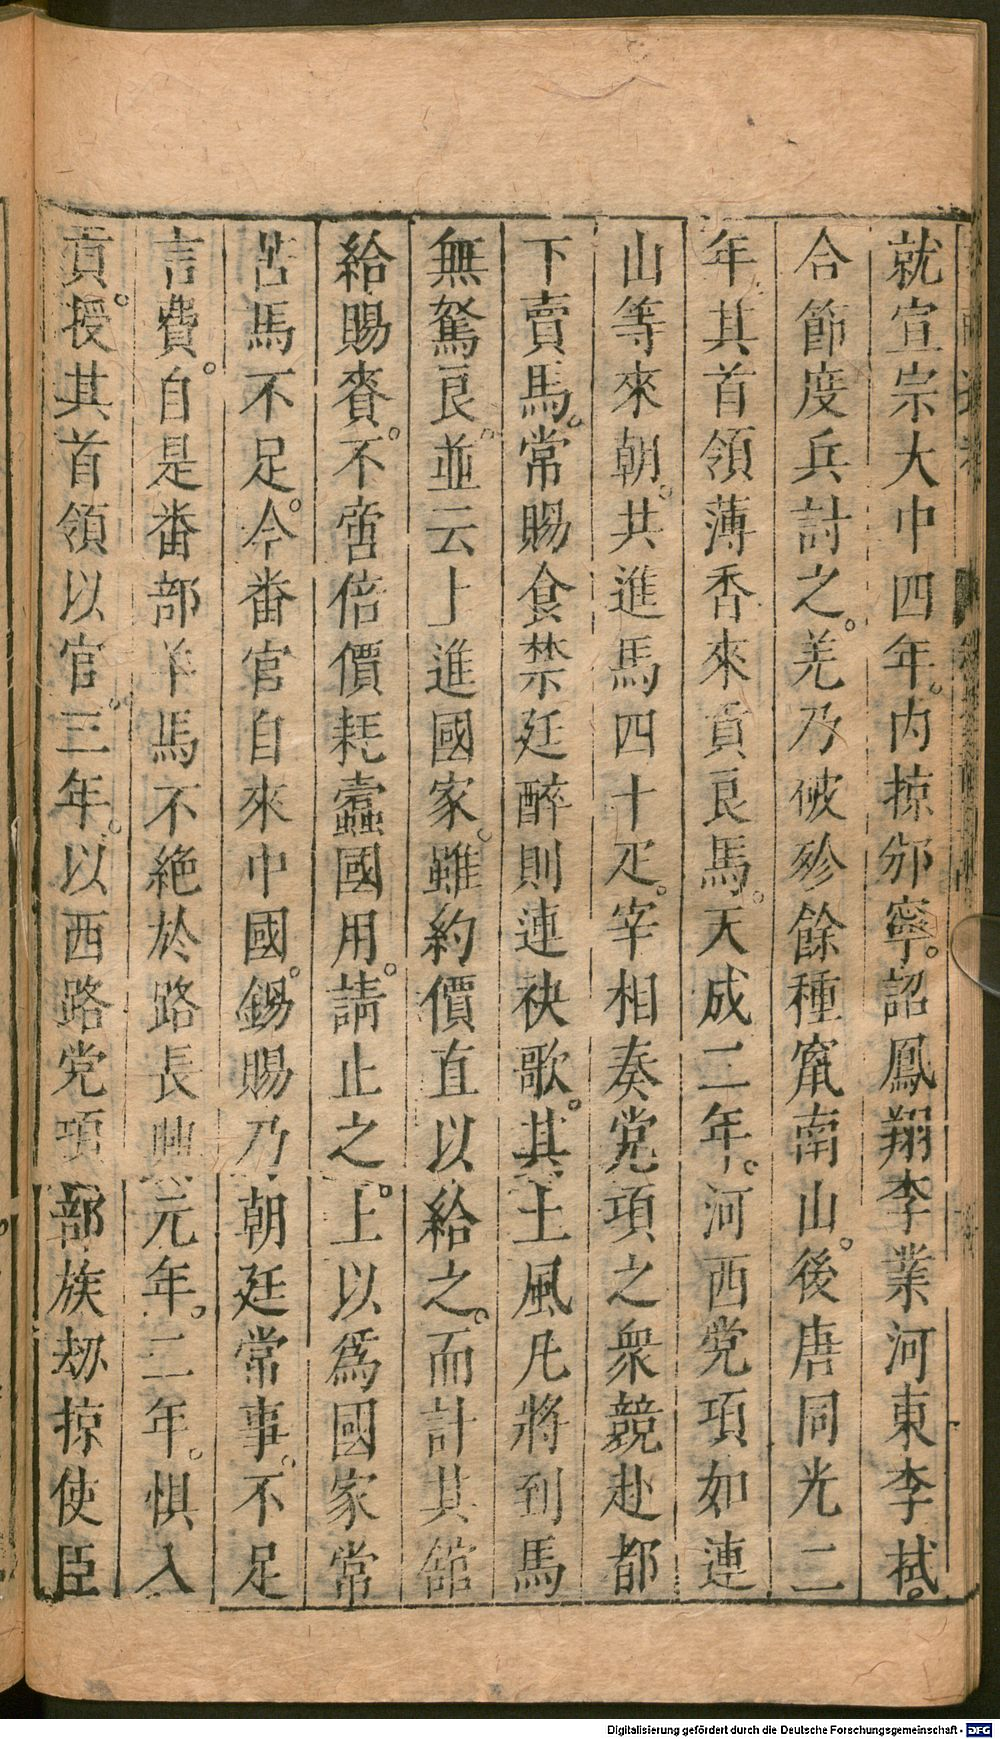 就宣宗大中四年。內掠邠寧。詔鳳翔李業河東李拭。
合節度兵討之。羌乃破殄餘種竄南山。後唐同光二
年其首領薄香來貢良馬。天成二年。河西党項如連
山等來朝。共進馬四十疋。宰相奏党項之衆競赴都
下賣馬。常賜食禁廷醉則連袂歌。其土風凡將到馬
無駑良。並云上進國家。雖約價直以給之。而計其館
給賜賚。不啻倍價耗蠹國用。請止之。上以爲國家常
苦馬不足。今番官自來中國。錫賜乃朝廷常事。不足
言費。自是番部羊馬不絕於路長興元年。二年。惧入
貢。授其首領以官。三年。以西路党項部族劫掠使臣
Digitalisierung gefördert durch die Deutsche Forschungsgemeinschaft - DFG